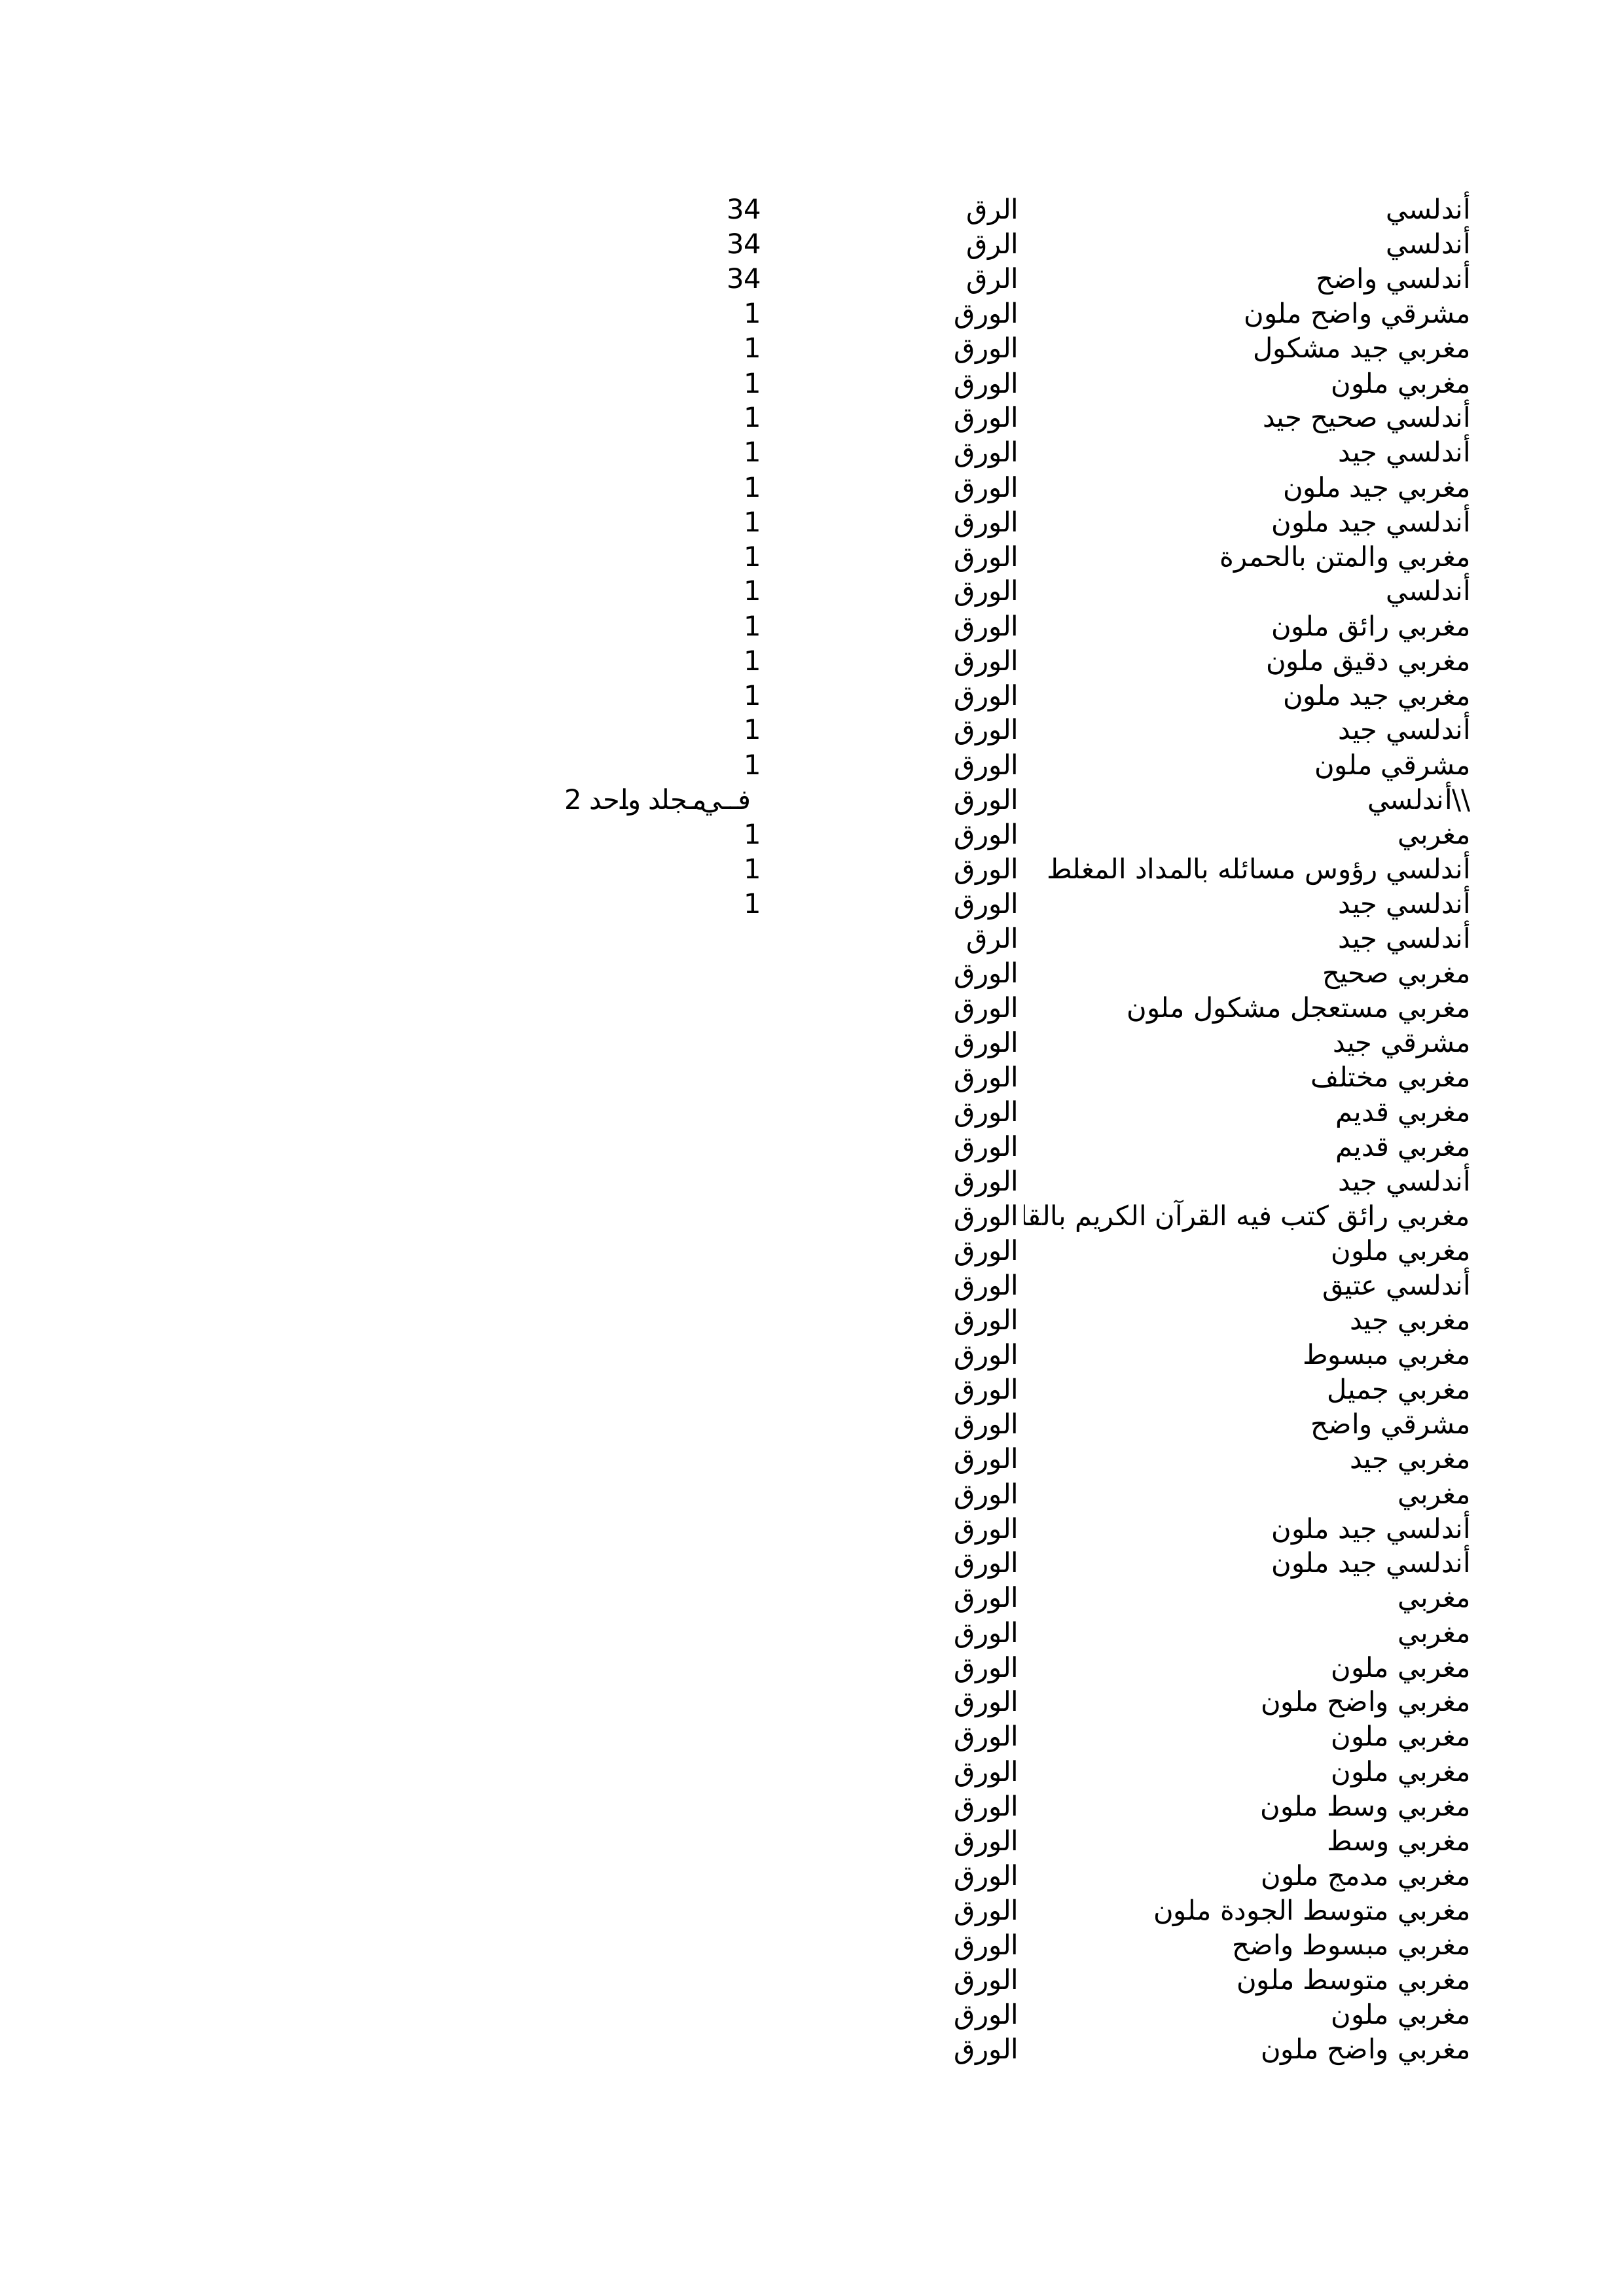 أندلسي الرق 34
أندلسي الرق 34
أندلسي واضح الرق 34
مشرقي واضح ملون الورق 1
مغربي جيد مشكول الورق 1
مغربي ملون الورق 1
أندلسي صحيح جيد الورق 1
أندلسي جيد الورق 1
مغربي جيد ملون الورق 1
أندلسي جيد ملون الورق 1
مغربي والمتن بالحمرة الورق 1
أندلسي الورق 1
مغربي رائق ملون الورق 1
مغربي دقيق ملون الورق 1
مغربي جيد ملون الورق 1
أندلسي جيد الورق 1
مشرقي ملون الورق 1
\\أندلسي الورق فــي مجلد واحد 2
مغربي الورق 1
أندلسي رؤوس مسائله بالمداد المغلط الورق 1
أندلسي جيد الورق 1
أندلسي جيد الرق
مغربي صحيح الورق
مغربي مستعجل مشكول ملون الورق
مشرقي جيد الورق
مغربي مختلف الورق
مغربي قديم الورق
مغربي قديم الورق
أندلسي جيد الورق
مغربي رائق كتب فيه القرآن الكريم الورق
مغربي ملون الورق
أندلسي عتيق الورق
مغربي جيد الورق
مغربي مبسوط الورق
مغربي جميل الورق
مشرقي واضح الورق
مغربي جيد الورق
مغربي الورق
أندلسي جيد ملون الورق
أندلسي جيد ملون الورق
مغربي الورق
مغربي الورق
مغربي ملون الورق
مغربي واضح ملون الورق
مغربي ملون الورق
مغربي ملون الورق
مغربي وسط ملون الورق
مغربي وسط الورق
مغربي مدمج ملون الورق
مغربي متوسط الجودة ملون الورق
مغربي مبسوط واضح الورق
مغربي متوسط ملون الورق
مغربي ملون الورق
مغربي واضح ملون الورق